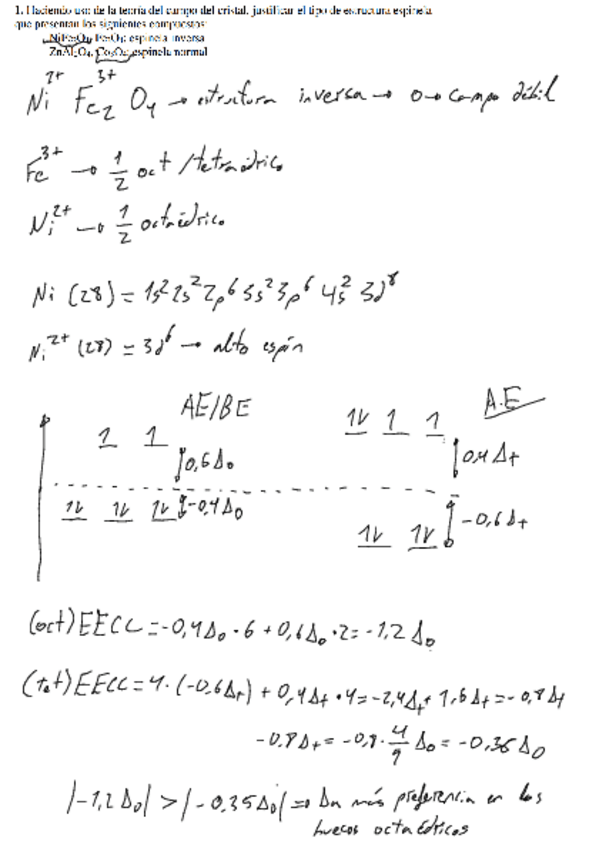 1. Haciendo uso de la teoría del campo del cristal, justificar el tipo de estructura espinela
que presentan los siguientes compuestos:
NiFe₂O₄, Fe₃O₄: espinela inversa
ZnAl₂O₄, Co₃O₄: espinela normal
Ni²⁺ Fe₂³⁺ O₄ → estructura inversa → O → campo débil
Fe³⁺ → 1/2 oct / tetraédrico
Ni²⁺ → 1/2 octaédrico
Ni (28) = 1s² 2s² 2p⁶ 3s² 3p⁶ 4s² 3d⁸
Ni²⁺ (28) = 3d⁸ → alto espín
AE/BE A.E
1 1 1v 1 1
0,6Δ₀ 0,4Δt
1v 1v 1v -0,4Δ₀ 1v 1v -0,6Δt
(oct) EECC = -0,4Δ₀·6 + 0,6Δ₀·2 = -1,2Δ₀
(tet) EECC = 4·(-0,6Δt) + 0,4Δt·4 = -2,4Δt + 1,6Δt = -0,8Δt
-0,8Δt = -0,8·4/9 Δ₀ = -0,36Δ₀
|-1,2Δ₀| > |-0,35Δ₀| ⇒ Da más preferencia en los
huecos octaédricos